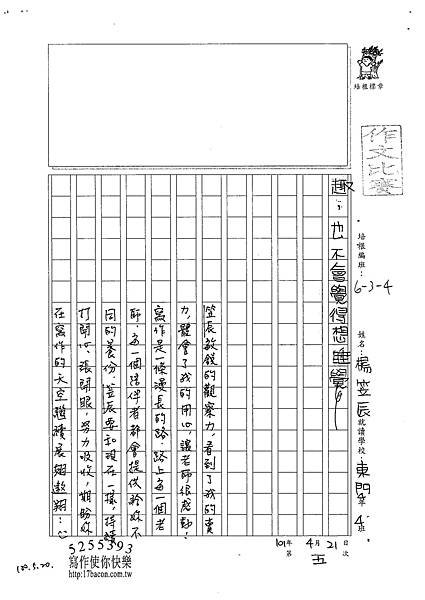 培根標章
作文比賽
培根編班：6-3-4
姓名：楊笠辰
就讀學校：東門 年 4 班
101年4月21日
第五次
趣，也不會覺得想睡覺！
笠辰敏銳的觀察力，看到了我的賣
力，體會了我的用心，讓老師很感動！
寫作是一條漫長的路，路上每一個老
師，每一個陪伴者都會提供給妳不
同的養份，笠辰要和現在一樣，持續
打開心、張開眼，努力吸收，期盼妳
在寫作的天空繼續展翅遨翔！：）
5255393
寫作使你快樂
http://17bacon.com.tw/
100.5.20.